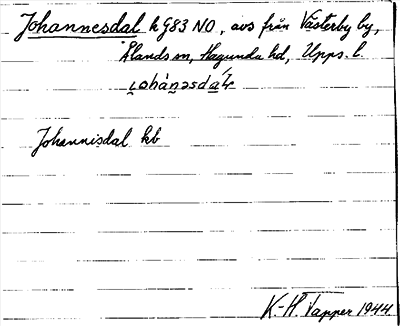 Johannesdal k G83 NO, avs från Västerby by,
Ålands sn, Hagunda hd, Upps. l.
Johannisdal kb
K.-H. Tapper 1944